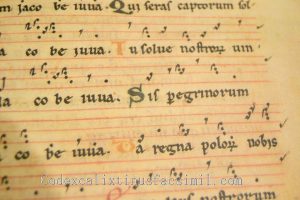 m jaco be iuua. Qui seras captorum sol
co be iuua. Tu solue nostrorum uin
co be iuua. Sis peregrinorum
co be iuua. Da regna polorum nobis
nostrorum
Codexcalixtinusfacsimil.com